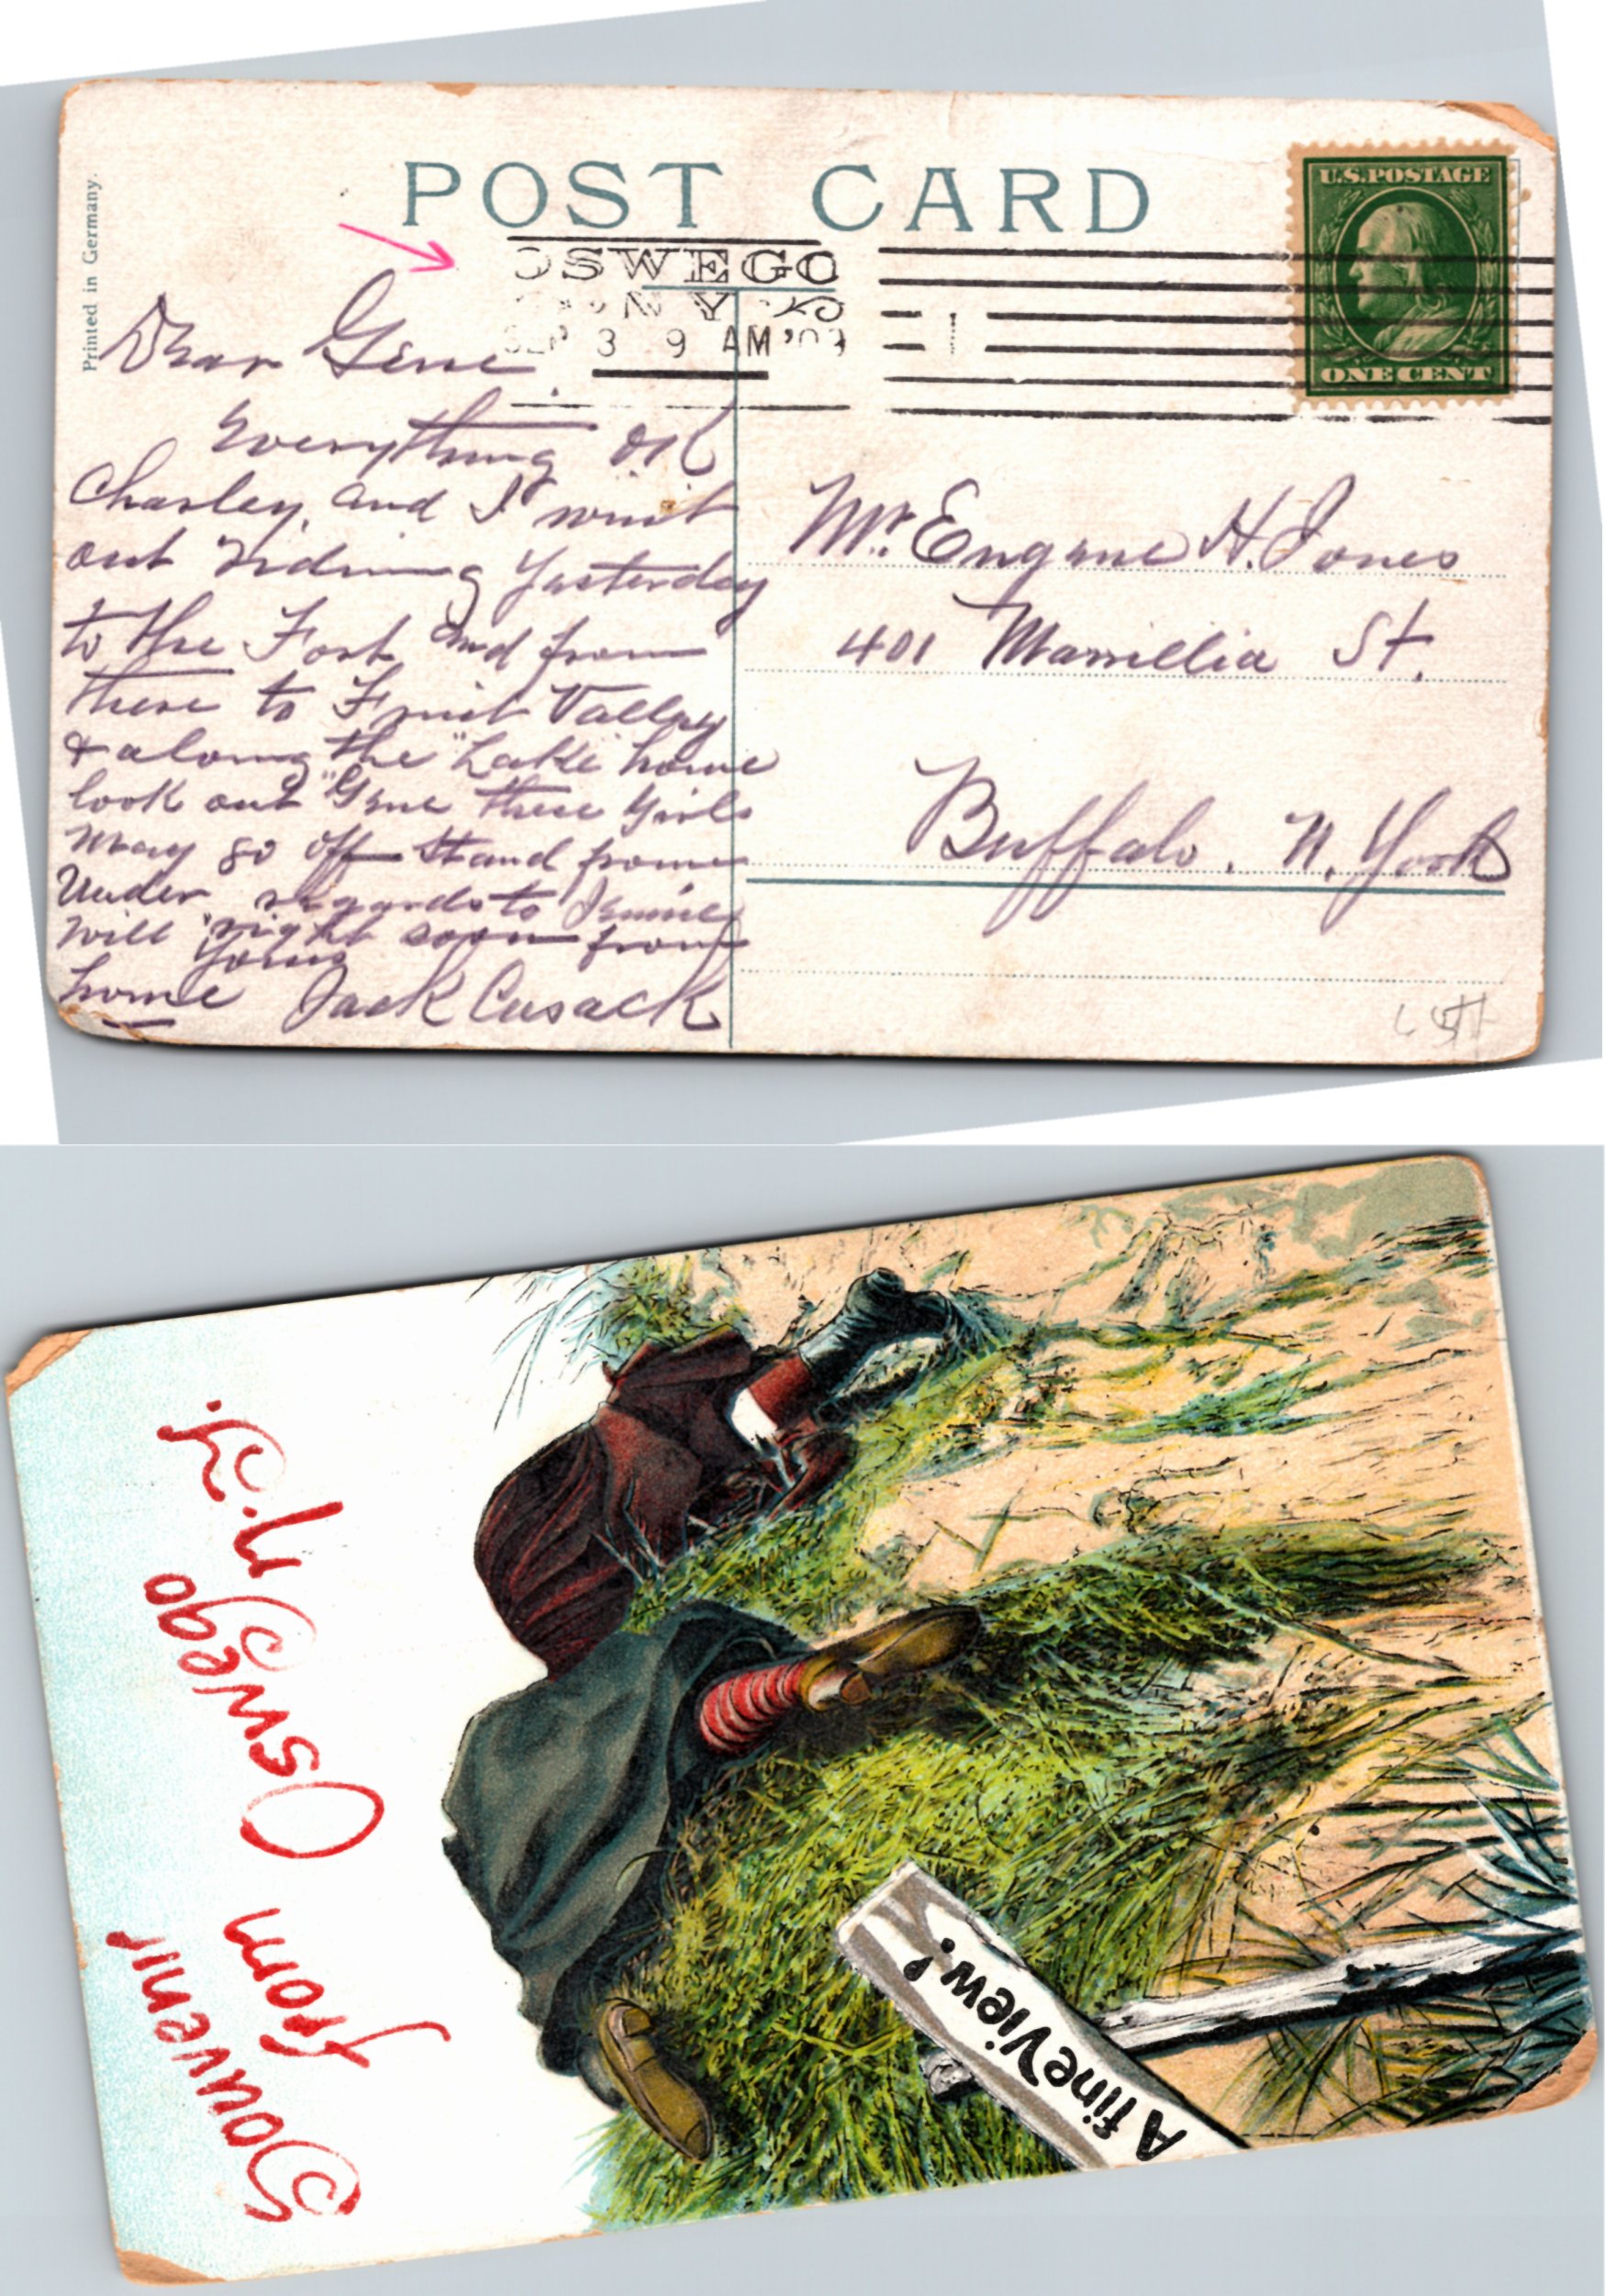 Printed in Germany.
POST CARD
U.S. POSTAGE
ONE CENT
OSWEGO
N.Y.
SEP 3 9 AM '09
1
Dear Gene
Everything OK
Charley, and I wint
out riding yesterday
to the Fort and from
there to Fruit Valley
& along the "Lake" home
look out "Gene these girls
may go off stand from
Under regards to
will right soon from
Yours
home Jack Cusack
Mr. Eugene H. Jones
401 St.
Buffalo. N. York
Souvenir
from Oswego N.Y.
A fine View!